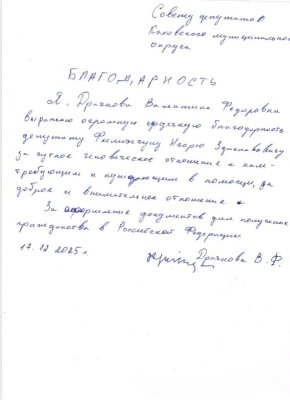 Совету депутатов
Каховского муниципального
округа
БЛАГОДАРНОСТЬ
Я, Драчнова Валентина Федоровна
выражаю огромную сердечную благодарность
депутату Филипчуку Игорю Здиславовичу
за чуткое человеческое отношение к нам-
требующим и нуждающим в помощи, за
доброе и внимательное отношение.
За оформление документов для получение
гражданства в Российской Федерации.
17.12.2025г.
Драчнова В. Ф.